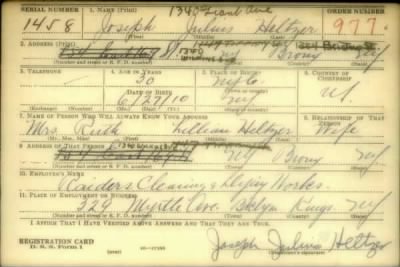 1340 Grant Ave
SERIAL NUMBER 1. NAME (Print) ORDER NUMBER
1458 Joseph Julius Heltzer 977
2. ADDRESS (Print)
1340 Bronx NY
(Number and street or R. F. D. number)
3. TELEPHONE 4. AGE IN YEARS 5. PLACE OF BIRTH 6. COUNTRY OF CITIZENSHIP
30 NY Co
DATE OF BIRTH
6/27/10 NY
(Exchange) (Number) (Mo.) (Day) (Yr.)
7. NAME OF PERSON WHO WILL ALWAYS KNOW YOUR ADDRESS 8. RELATIONSHIP OF THAT
Mrs. Ruth Lillian Heltzer Wife
9. ADDRESS OF THAT PERSON
NY Bronx NY
(Number and street or R. F. D. number)
10. EMPLOYER'S NAME
Raiders Cleaning & Dying Works.
11. PLACE OF EMPLOYMENT OR BUSINESS
324 Myrtle Ave. Bklyn Kings NY
(Number and street or R. F. D. number)
I AFFIRM THAT I HAVE VERIFIED ABOVE ANSWERS AND THAT THEY ARE TRUE.
REGISTRATION CARD
D. S. S. Form 1
Joseph Julius Heltzer